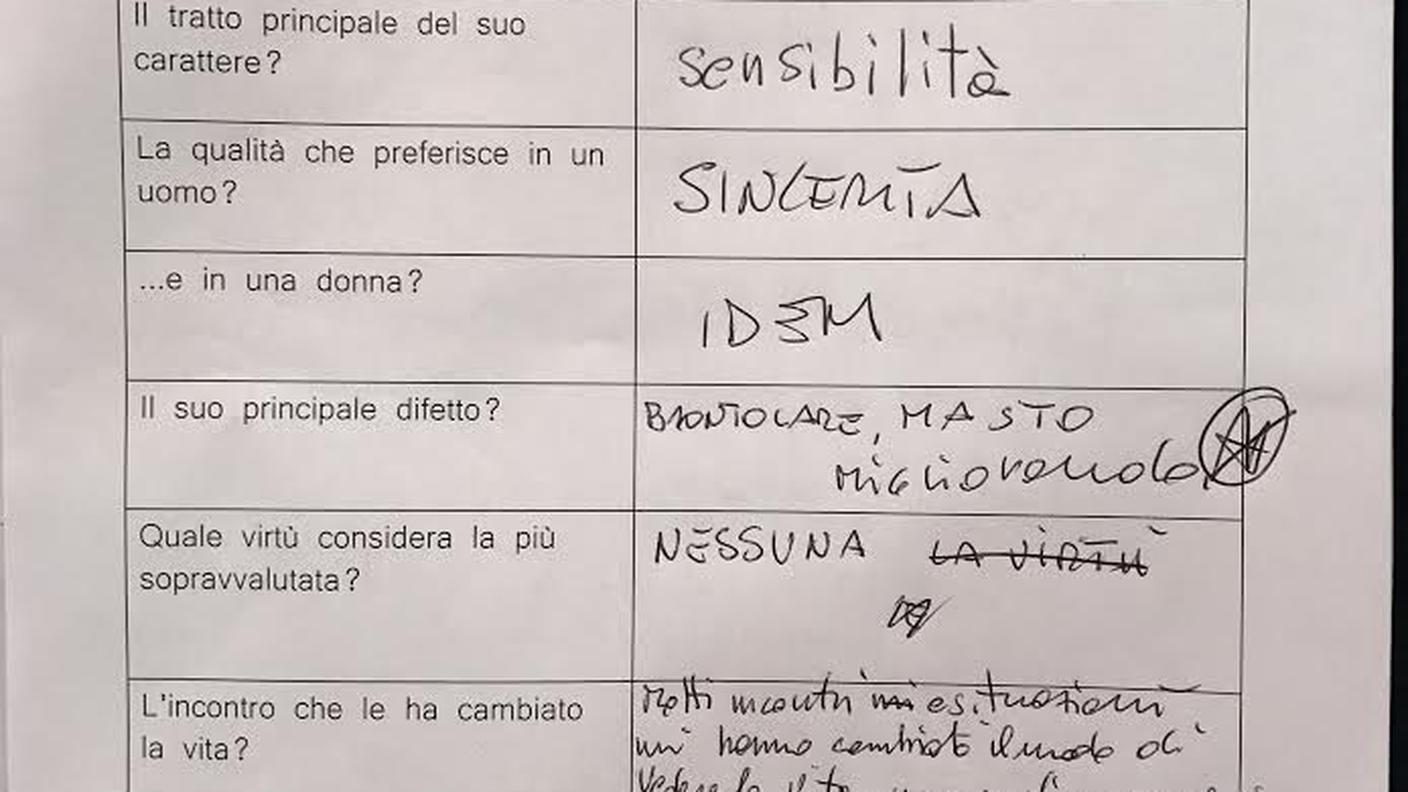 Il tratto principale del suo
carattere?
sensibilità
La qualità che preferisce in un
uomo?
SINCERITÀ
...e in una donna?
IDEM
Il suo principale difetto?
BRONTOLARE, MA STO
miglioRando
Quale virtù considera la più
sopravvalutata?
NESSUNA LA VIRTÙ
L'incontro che le ha cambiato
la vita?
Molti incontri e situazioni
mi hanno cambiato il modo di
vedere la vita